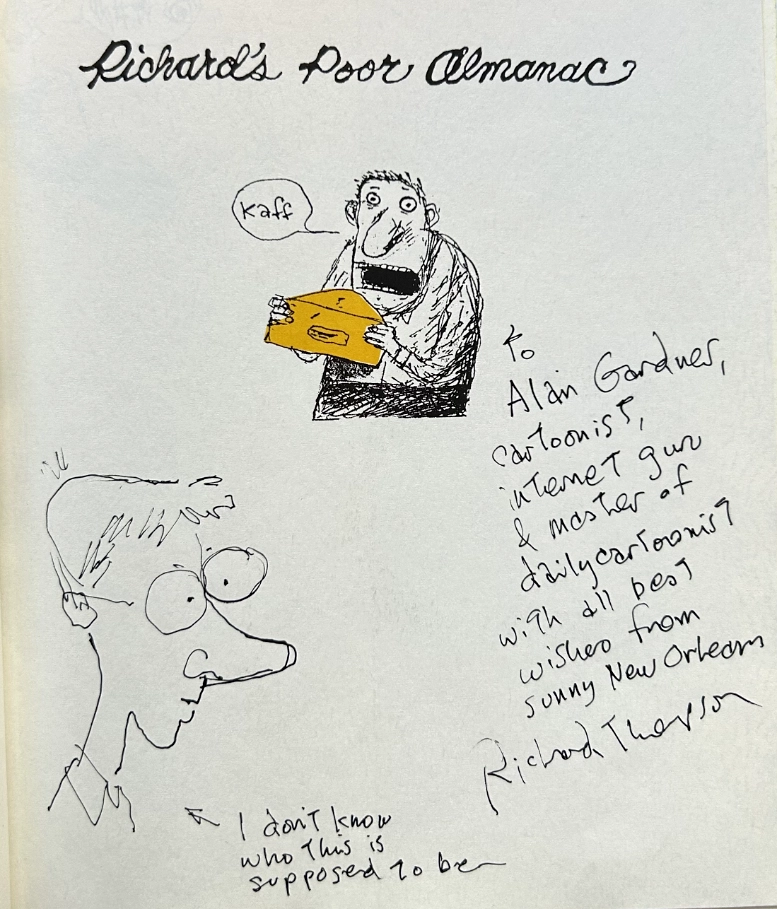 Richard's Poor Almanac
Kaff
To
Alan Gardner,
cartoonist,
internet guru
& master of
dailycartoonist
with all best
wishes from
sunny New Orleans
Richard Thompson
I don't know
who this is
supposed to be